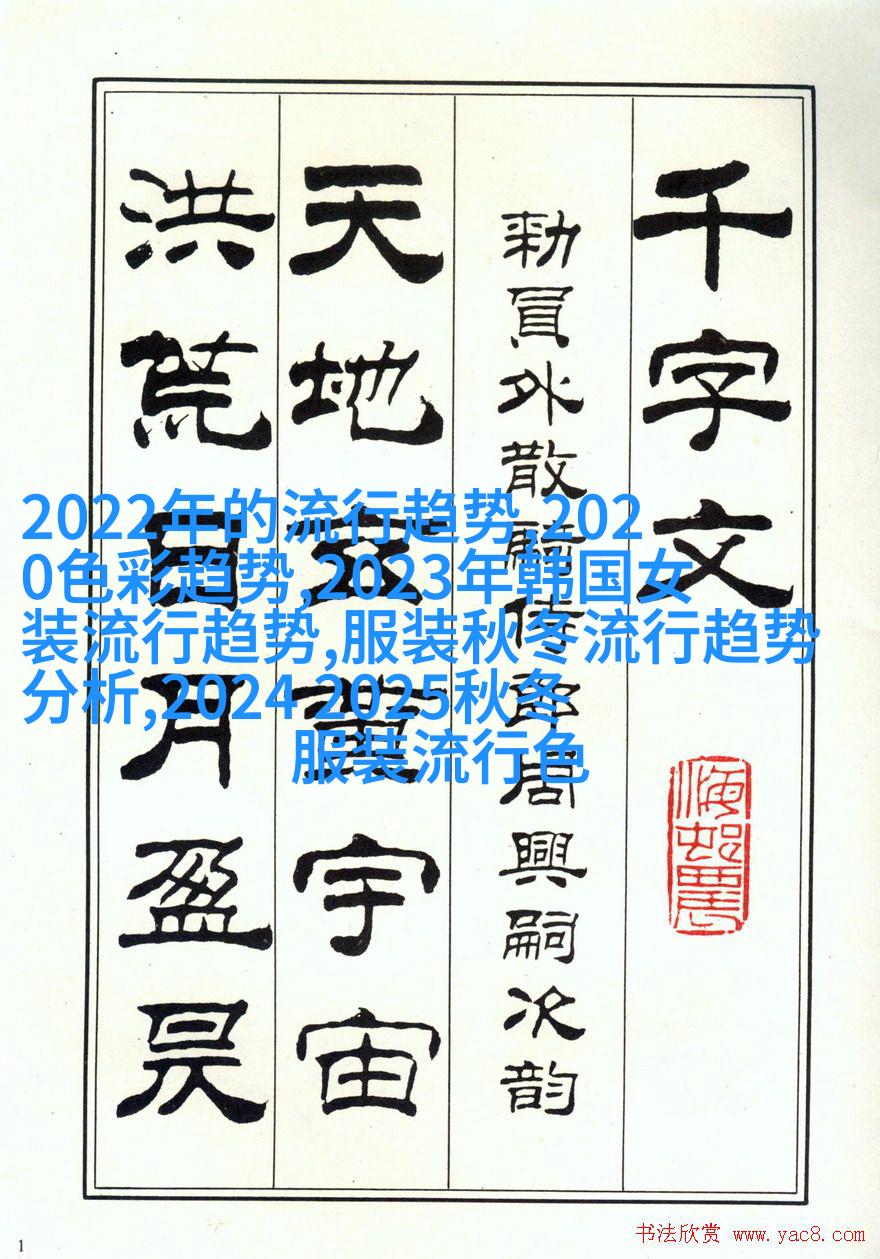 千字文
勑員外散騎侍郎周興嗣次韵
天地玄黃宇宙
洪荒日月盈昃
2022年的流行趋势,202
0色彩趋势,2023年韩国女
装流行趋势,服装秋冬流行趋势
分析,2024 2025秋冬
服装流行色
1
书法欣赏 www.yac8.com